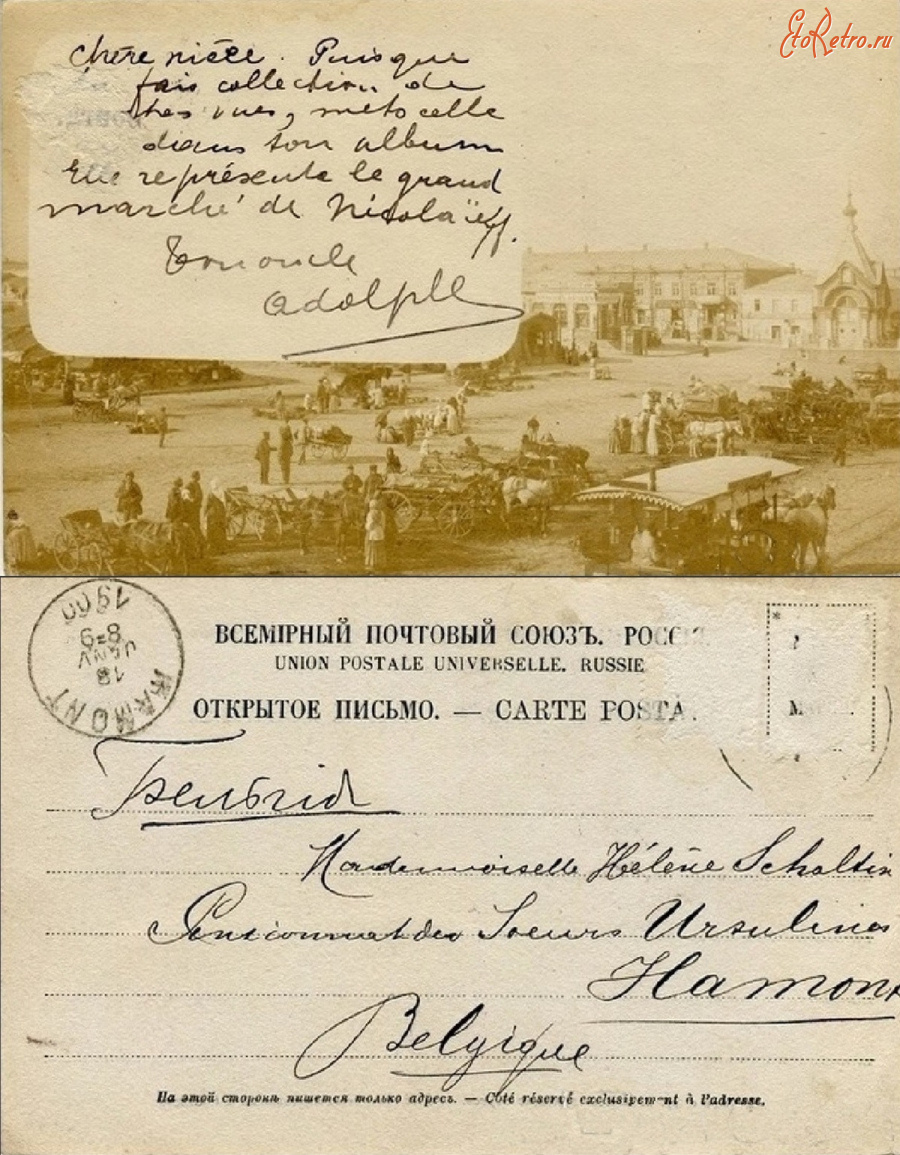 EtoRetro.ru
Chère nièce. Puisque
fais collection de
vues, mets celle
dans ton album
Elle représente le grand
marché de Nicolaïeff.
Ton oncle
Adolphe
HAMONT
18
JANV
8-9
1900
ВСЕМІРНЫЙ ПОЧТОВЫЙ СОЮЗЪ. РОССІ
UNION POSTALE UNIVERSELLE. RUSSIE
ОТКРЫТОЕ ПИСЬМО. — CARTE POSTA.
Бельгія
Mademoiselle Hélène Scholtin
Pensionnat des Soeurs Ursulines
Hamont
Belgique
На этой сторонѣ пишется только адресъ. — Côté réservé exclusivement à l'adresse.